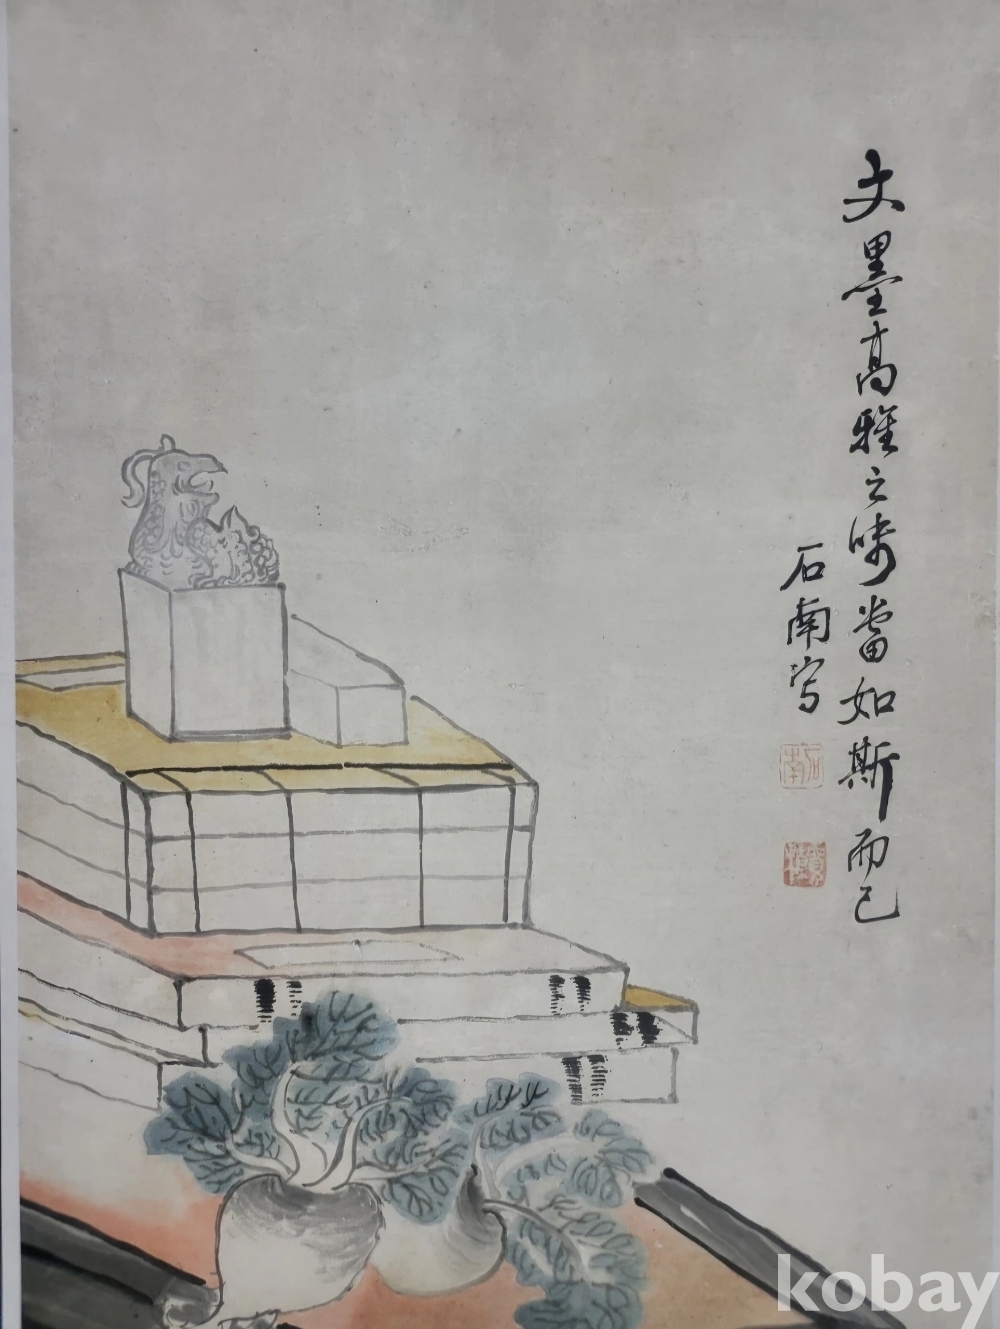 文墨高雅之味當如斯而已
石南写
石南
kobay